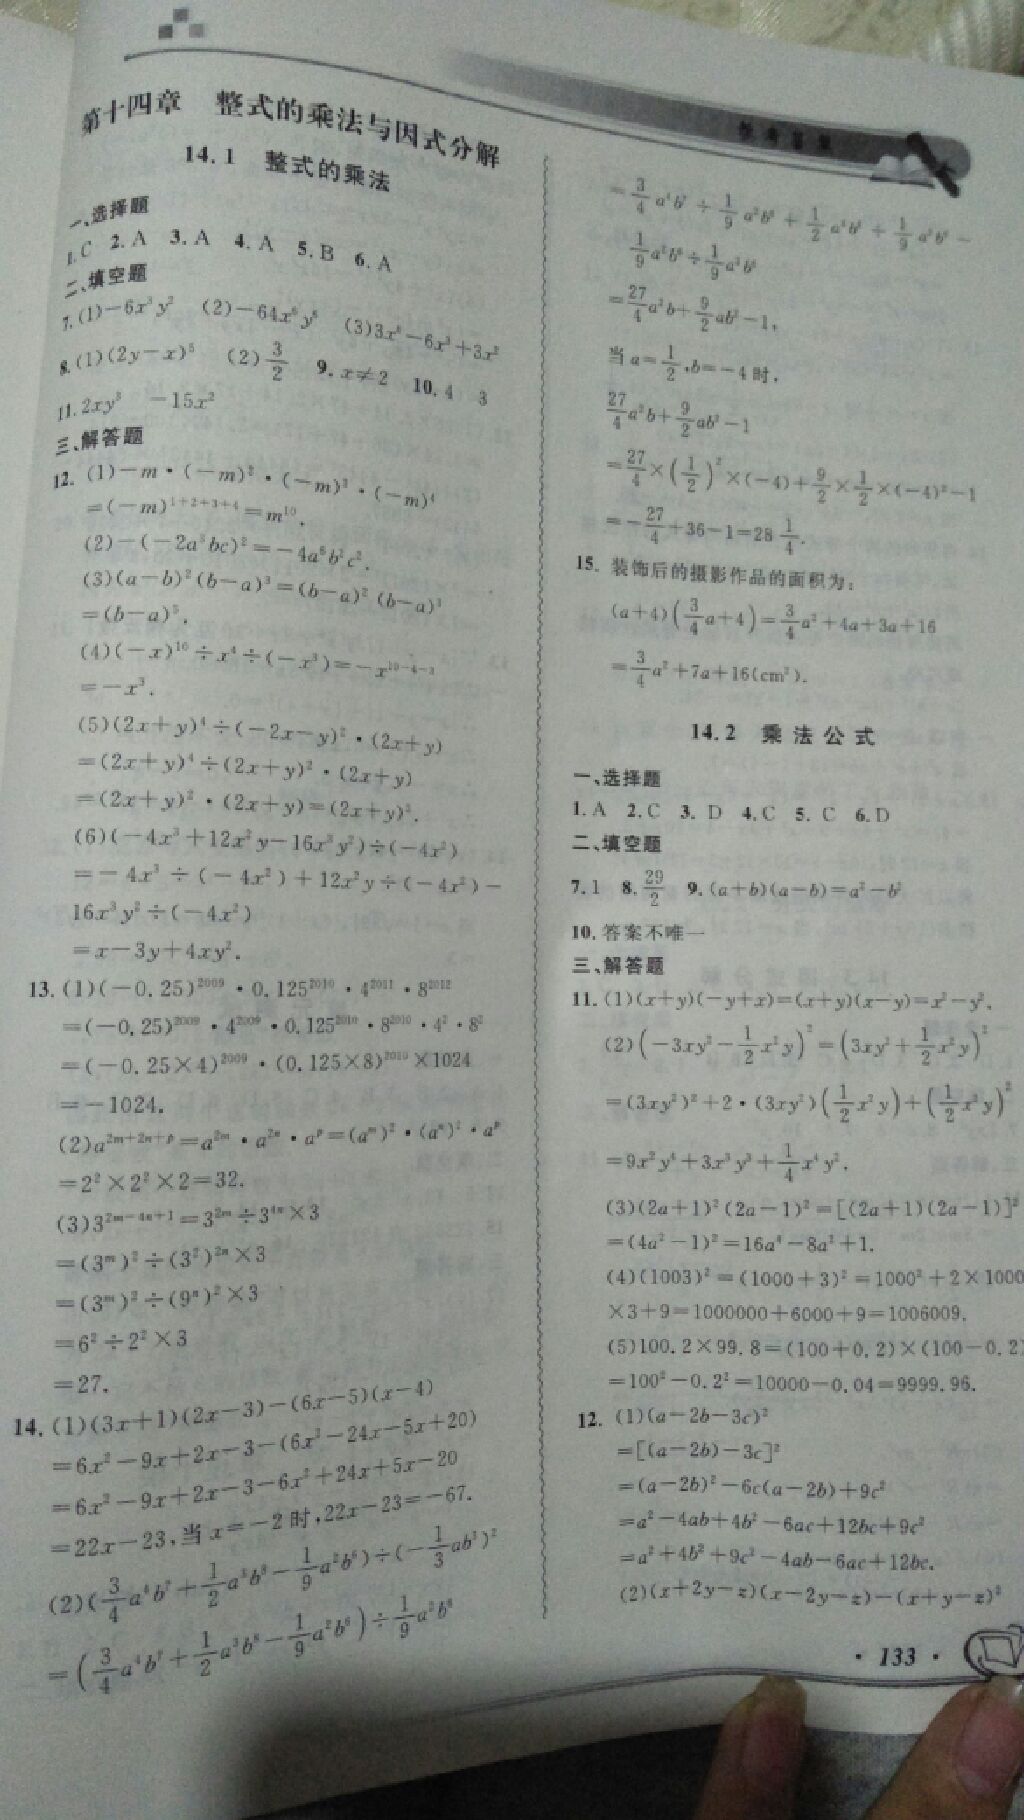 参考答案
第十四章 整式的乘法与因式分解
14.1 整式的乘法
一、选择题
1.C 2.A 3.A 4.A 5.B 6.A
二、填空题
7.(1)-6x³y² (2)-64x⁶y⁶ (3)3x⁶-6x³+3x²
8.(1)(2y-x)⁵ (2)3/2 9.x≠2 10.4 3
11.2xy³ -15x²
三、解答题
12.(1)-m·(-m)²·(-m)³·(-m)⁴
=(-m)¹⁺²⁺³⁺⁴=m¹⁰.
(2)-(-2a³bc)²=-4a⁶b²c².
(3)(a-b)²(b-a)³=(b-a)²(b-a)³
=(b-a)⁵.
(4)(-x)¹⁰÷x⁴÷(-x³)=-x¹⁰⁻⁴⁻³
=-x³.
(5)(2x+y)⁴÷(-2x-y)²·(2x+y)
=(2x+y)⁴÷(2x+y)²·(2x+y)
=(2x+y)²·(2x+y)=(2x+y)³.
(6)(-4x³+12x²y-16x³y²)÷(-4x²)
=-4x³÷(-4x²)+12x²y÷(-4x²)-
16x³y²÷(-4x²)
=x-3y+4xy².
13.(1)(-0.25)²⁰⁰⁹·0.125²⁰¹⁰·4²⁰¹¹·8²⁰¹²
=(-0.25)²⁰⁰⁹·4²⁰⁰⁹·0.125²⁰¹⁰·8²⁰¹⁰·4²·8²
=(-0.25×4)²⁰⁰⁹·(0.125×8)²⁰¹⁰×1024
=-1024.
(2)a^(2m+2n+p)=a^(2m)·a^(2n)·a^p=(a^m)²·(a^n)²·a^p
=2²×2²×2=32.
(3)3^(2m-4n+1)=3^(2m)÷3^(4n)×3
=(3^m)²÷(3²)^(2n)×3
=(3^m)²÷(9^n)²×3
=6²÷2²×3
=27.
14.(1)(3x+1)(2x-3)-(6x-5)(x-4)
=6x²-9x+2x-3-(6x²-24x-5x+20)
=6x²-9x+2x-3-6x²+24x+5x-20
=22x-23,当x=-2时,22x-23=-67.
(2)(3/4a⁴b⁷+1/2a³b⁸-1/9a²b⁶)÷(-1/3ab³)²
=(3/4a⁴b⁷+1/2a³b⁸-1/9a²b⁶)÷1/9a²b⁶
=3/4a⁴b⁷÷1/9a²b⁶+1/2a³b⁸÷1/9a²b⁶-
1/9a²b⁶÷1/9a²b⁶
=27/4a²b+9/2ab²-1,
当a=1/2,b=-4时,
27/4a²b+9/2ab²-1
=27/4×(1/2)²×(-4)+9/2×1/2×(-4)²-1
=-27/4+36-1=28 1/4.
15.装饰后的摄影作品的面积为:
(a+4)(3/4a+4)=3/4a²+4a+3a+16
=3/4a²+7a+16(cm²).
14.2 乘法公式
一、选择题
1.A 2.C 3.D 4.C 5.C 6.D
二、填空题
7.1 8.29/2 9.(a+b)(a-b)=a²-b²
10.答案不唯一
三、解答题
11.(1)(x+y)(-y+x)=(x+y)(x-y)=x²-y².
(2)(-3xy²-1/2x²y)²=(3xy²+1/2x²y)²
=(3xy²)²+2·(3xy²)(1/2x²y)+(1/2x²y)²
=9x²y⁴+3x³y³+1/4x⁴y².
(3)(2a+1)²(2a-1)²=[(2a+1)(2a-1)]²
=(4a²-1)²=16a⁴-8a²+1.
(4)(1003)²=(1000+3)²=1000²+2×1000
×3+9=1000000+6000+9=1006009.
(5)100.2×99.8=(100+0.2)×(100-0.2)
=100²-0.2²=10000-0.04=9999.96.
12.(1)(a-2b-3c)²
=[(a-2b)-3c]²
=(a-2b)²-6c(a-2b)+9c²
=a²-4ab+4b²-6ac+12bc+9c²
=a²+4b²+9c²-4ab-6ac+12bc.
(2)(x+2y-z)(x-2y-z)-(x+y-z)²
·133·